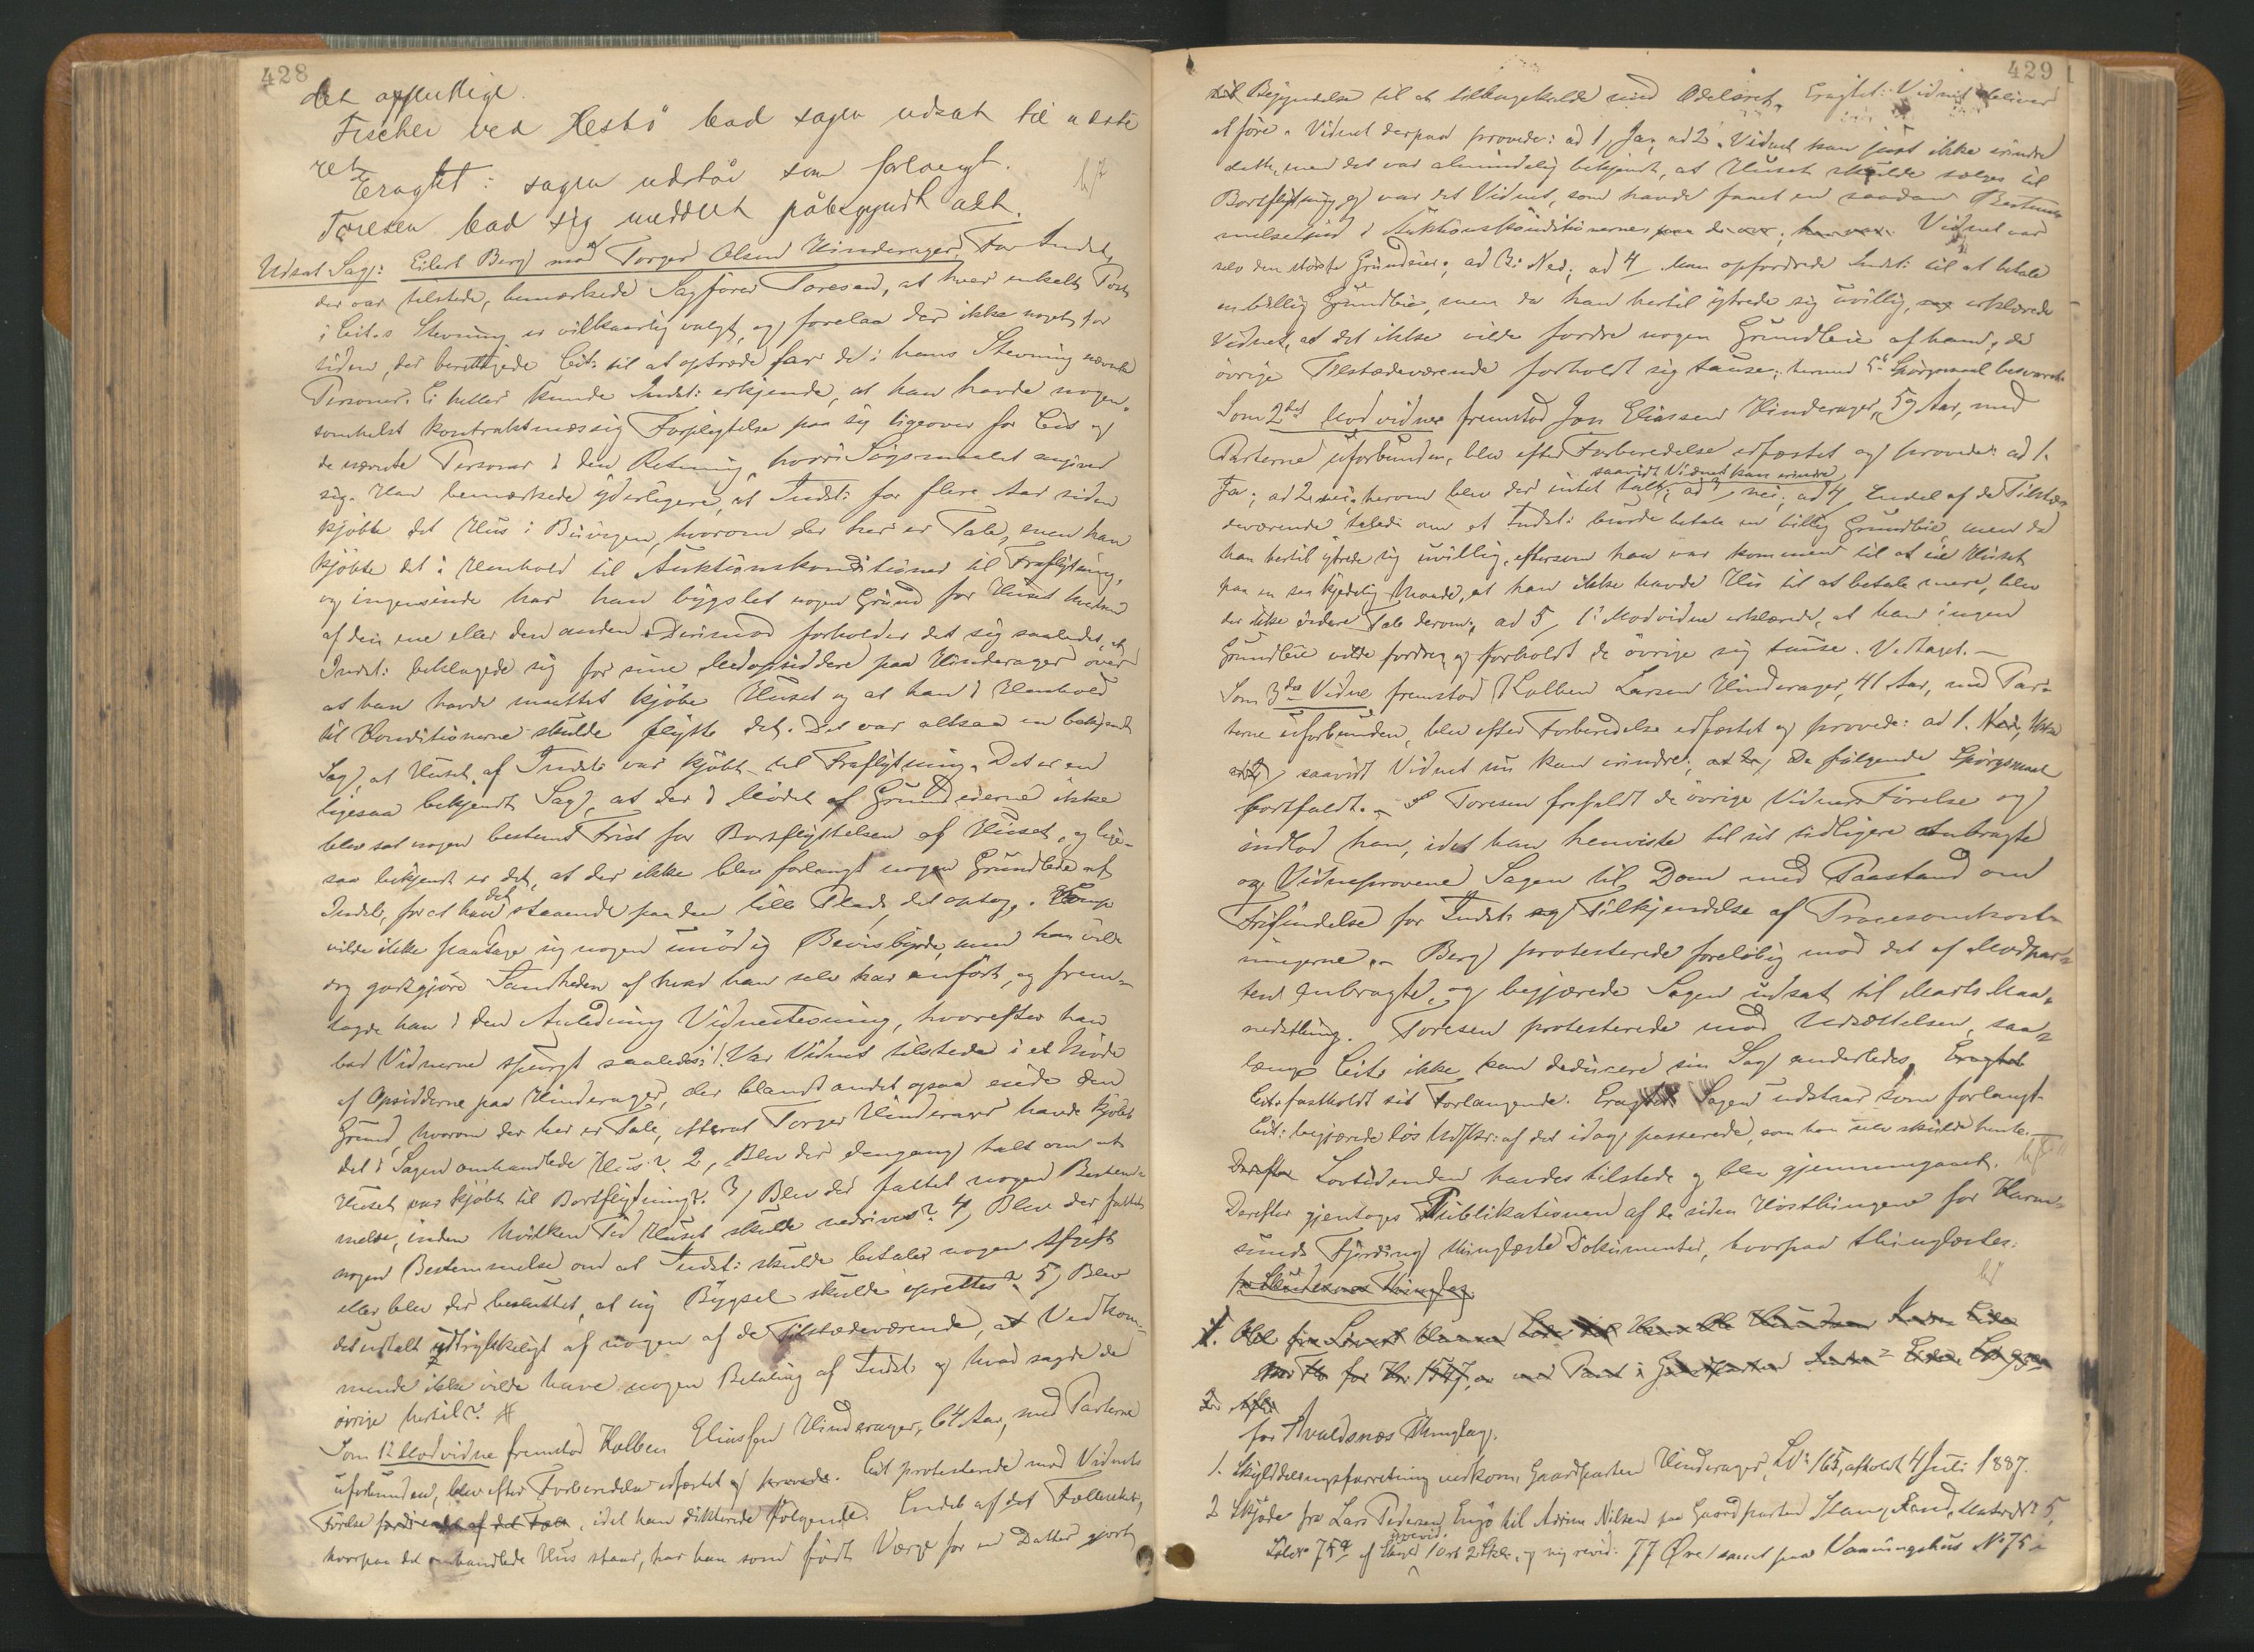 428
det offentlige.
Fischer ved Hestø bad sagen udsat til næste
ret
Eragtet: sagen udstår som forlangt.
Toresen bad sig meddelt påbegyndt akt.
Udsat Sag: Eilert Berg mod Torger Olsen Hinderager. For Indst.,
der var tilstede, bemærkede Sagfører Toresen, at hver enkelt Post
i Cit.s Stevning er vilkaarlig valgt, og forelaa der ikke noget for
siden, der berettigede Cit: til at optræde for de i hans Stevning nævnte
Personer. Ei heller kunde Indst: erkjende, at han havde nogen-
somhelst kontraktmæssig Forpligtelse paa sig ligeover for Cit. og
de nævnte Personer i den Retning, hvori Søgsmaalet angived
sig. Han bemærkede yderligere, at Indst: for flere Aar siden
kjøbte det Hus i Buvigen, hvorom der her er Tale, men han
kjøbte det i Henhold til Auktionskonditioner til Fraflytning,
og ingensinde har han bygslet nogen Grund for Huset hverken
af den ene eller den anden. Derimod forholder det sig saaledes, at
Indst: beklagede sig for sine Medopsiddere paa Hinderager over
at han havde maattet kjøbe Huset og at han i Henhold
til Konditionerne skulde flytte det. Det var altsaa en bekjendt
Sag, at Huset af Indst: var kjøbt til Fraflytning. Det er en
ligesaa bekjendt Sag, at der i Mødet af Grundeierne ikke
blev sat nogen bestemt Frist for Bortflyttelsen af Huset, og lige-
saa bekjendt er det, at der ikke blev forlangt nogen Grundleie af
Indst., for at have det staaende paa den lille Plads, det optog. Komp
vilde ikke paatage sig nogen unødig Bevisbyrde, men han vil
dog godtgjøre Sandheden af hvad han selv har anført, og frem-
lagde han i den Anledning Vidnestevning, hvorefter han
bad Vidnerne spurgt saaledes: 1. Var Vidnet tilstede i et Møde
af Opsidderne paa Hinderager, der blandt andet ogsaa eiede den
Grund, hvorom der her er Tale, efterat Torger Hinderager havde kjøbt
det i Sagen omhandlede Hus? 2, Blev der dengang talt om at
Huset var kjøbt til Bortflytning? 3, Blev der fattet nogen Bestem-
melse, inden hvilken Tid Huset skulde nedrives? 4, Blev der fattet
nogen Bestemmelse om at Indst: skulde betale nogen Afgift
eller blev der besluttet, at ny Bygsel skulde oprettes? 5, Blev
det udtalt udtrykkeligt af nogen af de Tilstedeværende, at Vedkom-
mende ikke vilde have nogen Betaling af Indst: og hvad sagde de
øvrige hertil?
Som 1ste Modvidne fremstod Kolben Eliassen Hinderager, 64 Aar, med Parterne
uforbunden, blev efter Forberedelse edfæstet og provede. Cit protesterede mod Vidnets
Førelse fordi endel af det Fæll, idet han dikterede Følgende. Endel af det Fællesskab,
hvorpaa det omhandlede Hus staar, har han som født Værge for en Datter gjort
429
til Begyndelse til at tilbagekalde med Odelsret. Eragtet: Vidnet bliver
at føre. Vidnet derpaa provede: ad 1, Ja; ad 2. Vidnet kan just ikke erindre
dette, men det var almindelig bekjendt, at Huset skulde sælges til
Bortflytning, og var det Vidnet, som havde faaet en saadan Bestem-
melse ind i Auktionskonditionerne, Vidnet var
selv den største Grundeier; ad 3: Nei; ad 4, Man opfordrede Indst: til at betale
en billig Grundleie, men da han hertil ytrede sig uvillig, erklærede
Vidnet, at det ikke vilde fordre nogen Grundleie af ham; de
øvrige Tilstedeværende forholdt sig tause; hermed 5te Spørgsmaal besvaret.
Som 2det Modvidne fremstod Jon Eliassen Hinderager, 59 Aar, med
Parterne uforbunden, blev efter Forberedelse edfæstet og provede: ad 1.
saavidt Vidnet kan erindre
Ja; ad 2 nei, herom blev der intet talt; ad 3, nei; ad 4, Endel af de Tilstede-
deværende talede om at Indst: burde betale en billig Grundleie, men da
han hertil ytrede sig uvillig, eftersom han var kommen til at eie Huset
paa en saa kjedelig Maade, at han ikke havde til at betale mere, blev
der ikke videre Tale derom; ad 5, 1ste Modvidne erklærede, at han ingen
Grundleie vilde fordre, og forholdt de øvrige sig tause. Vedtaget.
Som 3die Vidne fremstod Kolben Larsen Hinderager, 41 Aar, med Par-
terne uforbunden, blev efter Forberedelse edfæstet og provede: ad 1. Nei, ikke
saavidt Vidnet nu kan erindre; De følgende Spørgsmaal
bortfaldt. Toresen frafaldt de øvrige Vidners Førelse og
indlod han, idet han henviste til sit tidligere Anbragte
og Vidneprovene Sagen til Dom med Paastand om
Frifindelse for Indst: og Tilkjendelse af Procesomkost-
ningerne. Berg protesterede foreløbig mod det af Modpar-
ten Anbragte, og begjærede Sagen udsat til Marts Maa-
nedsthing. Toresen protesterede mod Udsættelsen, saa-
længe Cit: ikke kan deducere sin Sag anderledes. Eragtet
Cit: fastholdt sit Forlangende. Eragtet Sagen udstaar som forlangt.
Cit: begjærede løs Udskr: af det idag passerede, som han selv skulde hente.
Derefter Lovtidenden havdes tilstede og blev gjennemgaaet.
Derefter gjentoges Publikationen af de siden Høstthingene for Karm-
sunds Fjerding thinglæste Dokumenter, hvorpaa thinglæstes:
for Avaldsnæs Thinglag.
1. Skylddelingsforretning vedkom. Gaardparten Hinderager, LNo 165, afholdt 4 Juli 1887.
2 Skjøde fra Lars Pedersen Engø til Adrine Nilsen paa Gaardparten Stangeland, Matr. No 5,
urevid.
af Skyld 1 Ort 2 Skl., og ny revid: 77 Øre samt paa Vaaningshus No 75